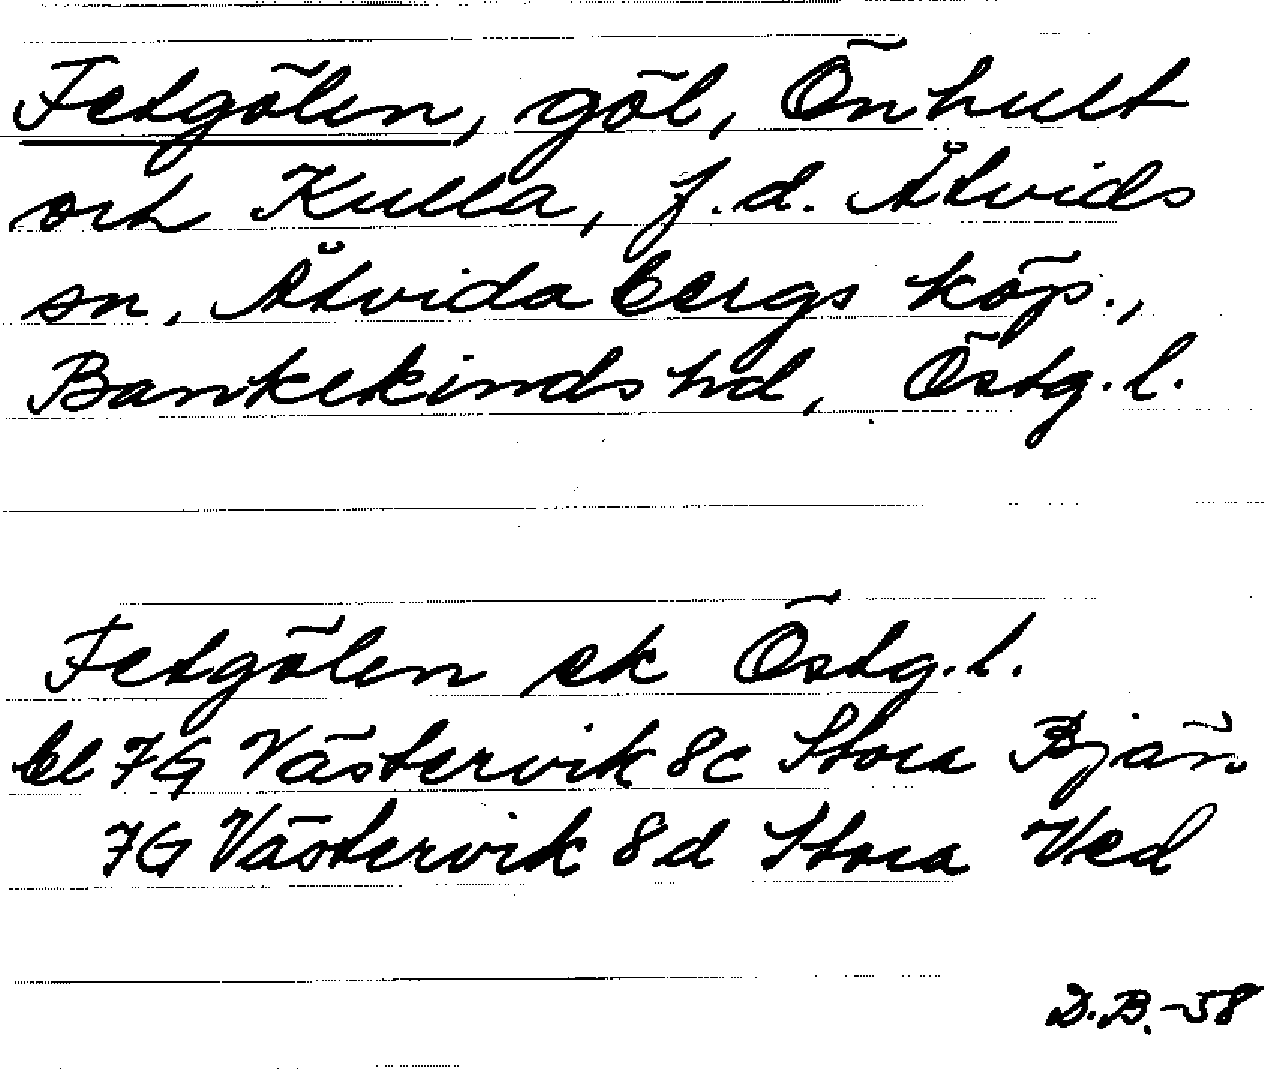 Fetgölen, göl, Önhult
och Kulla, f.d. Åtvids
sn, Åtvidabergs köp.,
Bankekinds hd, Östg.l.
Fetgölen ek Östg.l.
bl 7G Västervik 8c Stora Bjän
7G Västervik 8d Stora Ved
D.B.-58